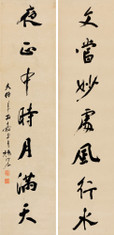 文當妙處風行水
夜正中時月滿天